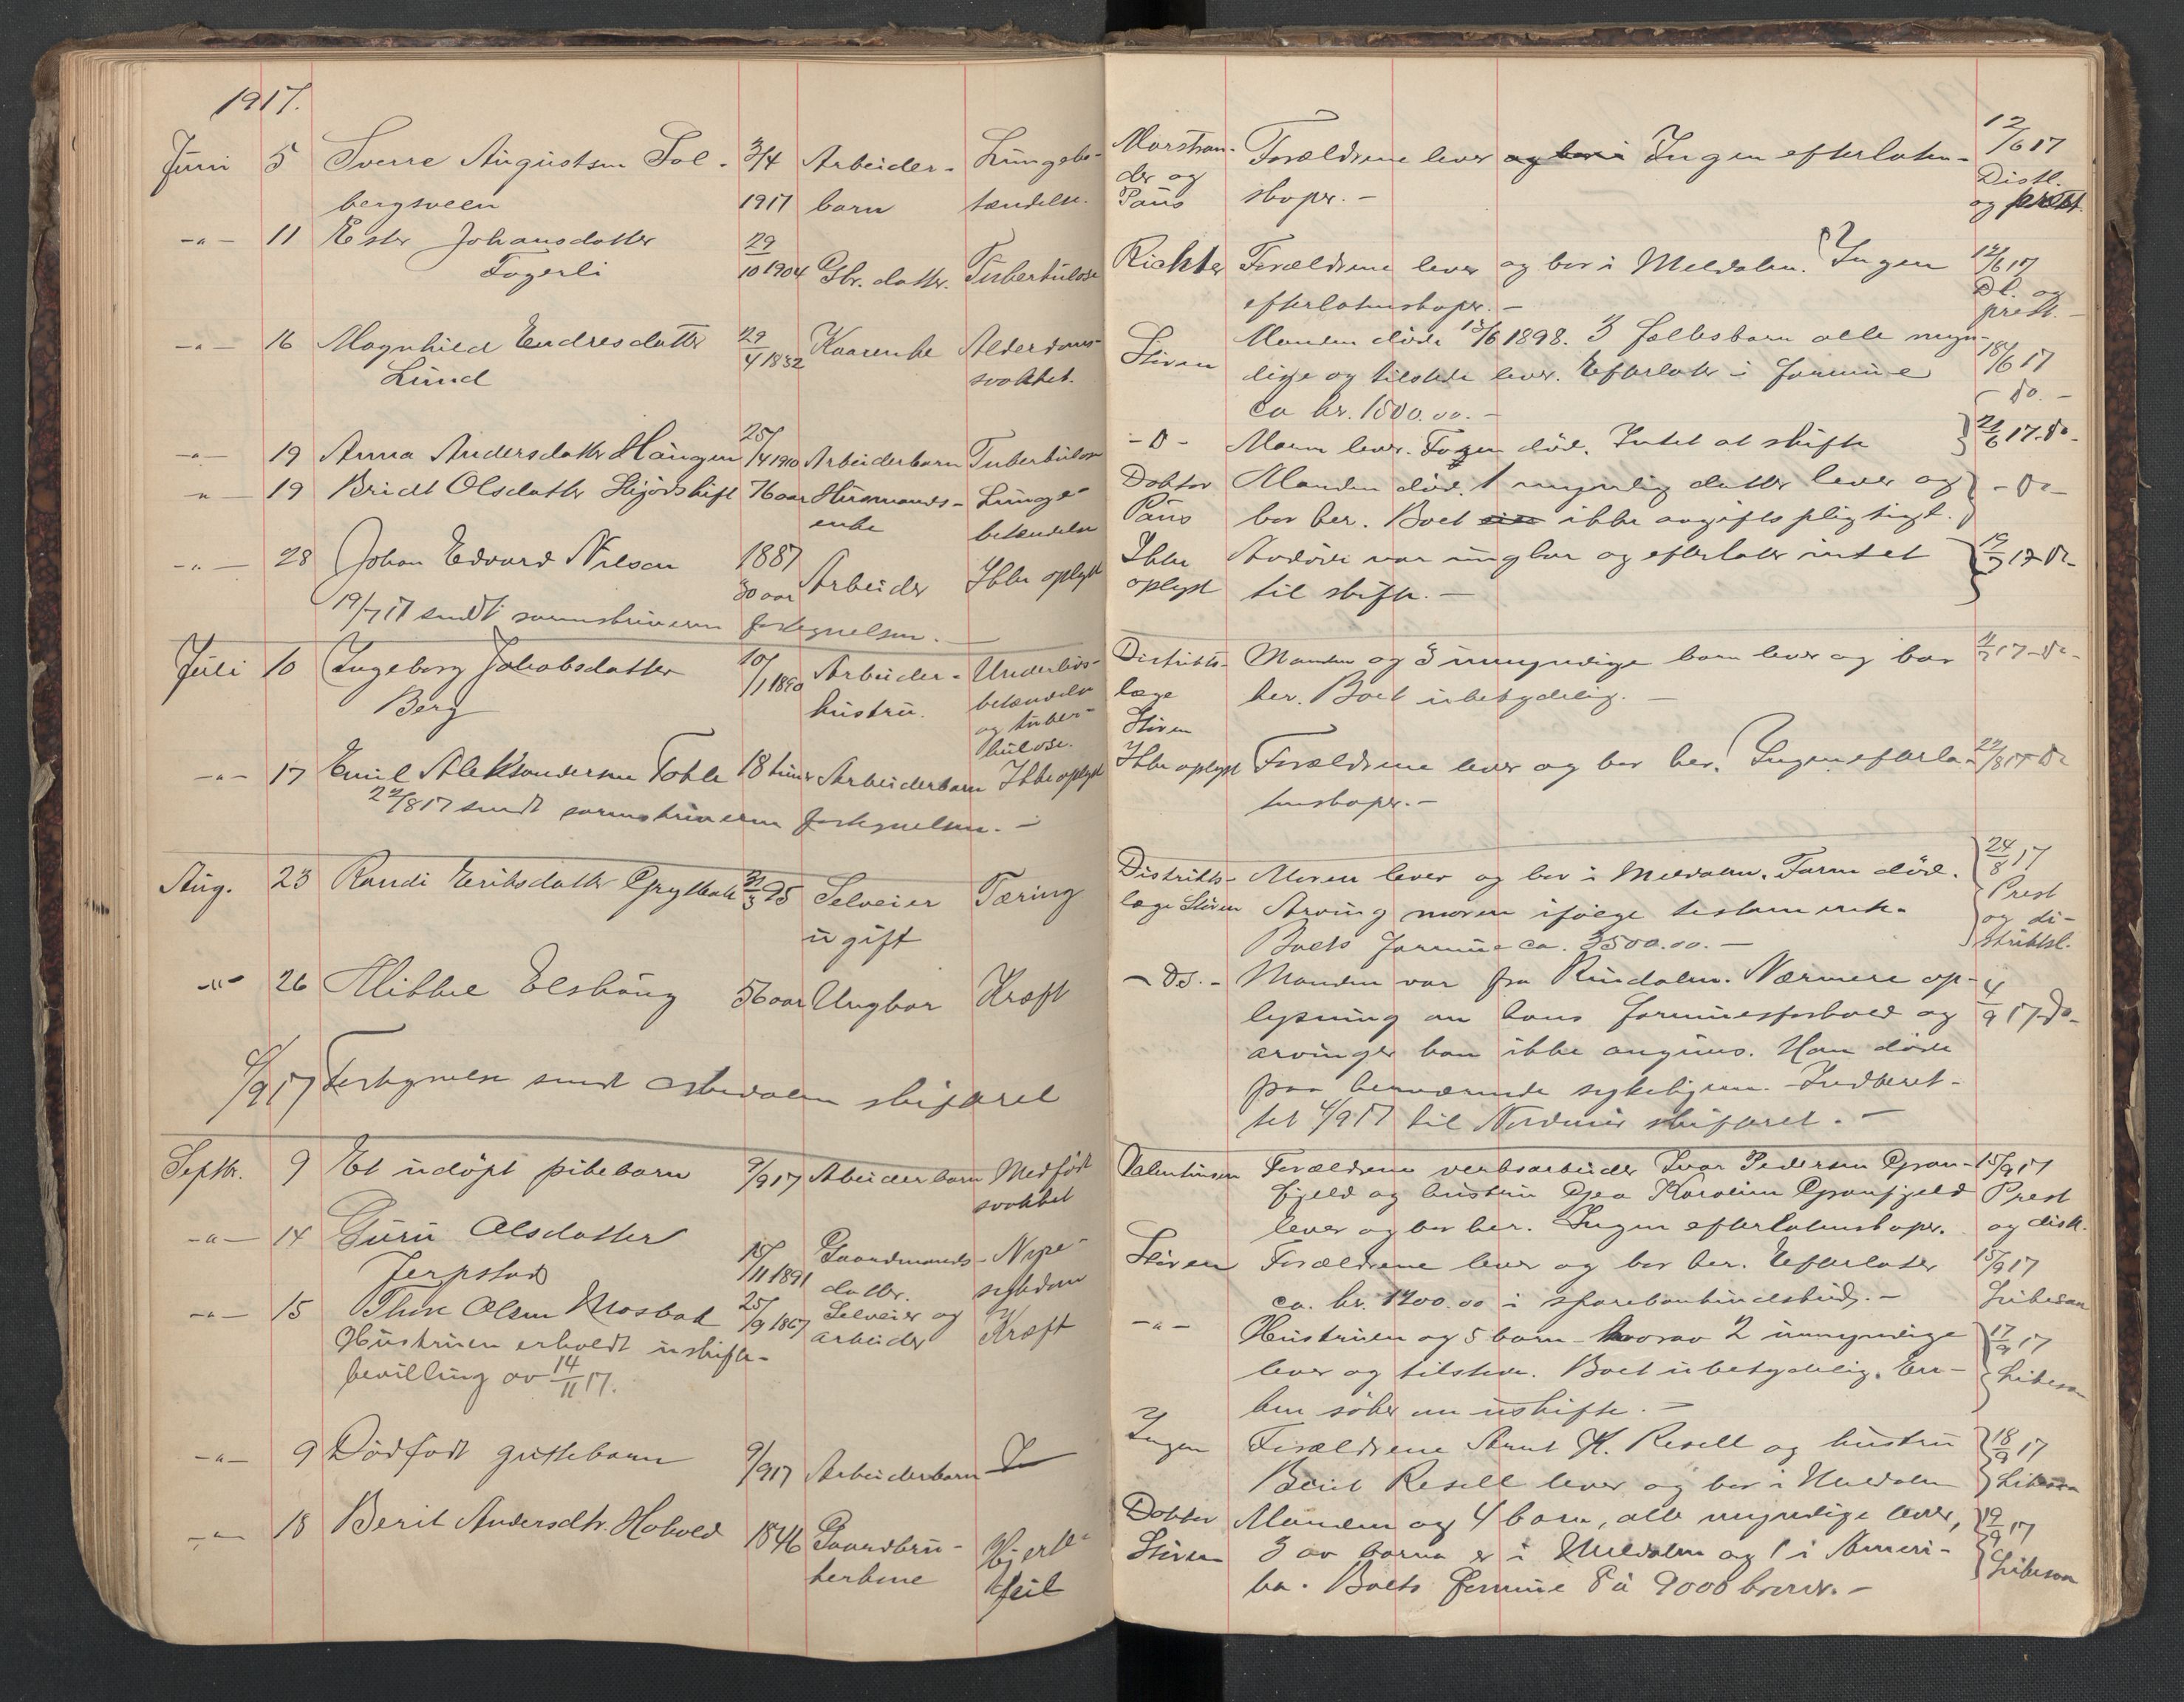 1917.
Juni 5 Sverre Augustsen Sol- 3/4 Arbeider- Lungebe-
bergsveen 1917 barn tændelse.
-"- 11 Ester Johansdatter 29/10 1904 Gbr. datter. Tuberkulose
Fagerli
-"- 16 Magnhild Endresdatter 29/4 1832 Kaarenke Alderdoms-
Lund svakhet.
-"- 19 Anna Andersdatter Haugen 25/4 1910 Arbeiderbarn Tuberkulose
-"- 19 Bridt Olsdatter 76 aar Husmands- Lunge-
enke betændelse
-"- 28 Johan Edvard Nilsen 1887 Arbeider Ikke oplyst
30 aar
19/7 17 sendt sorenskriveren fortegnelsen.
Juli 10 Ingeborg Jakobsdatter 10/1 1890 Arbeider- Underlivs-
Berg hustru. betændelse
og tuber-
kulose.
-"- 17 Emil Aleksandersen 18 timer Arbeiderbarn Ikke oplyst
22/8 17 sendt sorenskriveren fortegnelsen. -
Aug. 23 Randi Eriksdatter Grytbak 95 Selveier Tæring
ugift
-"- 26 Mikkel Elshaug 56 aar Ungkar Kræft
4/9 17 Fortegnelse sendt skifteret
Septbr. 9 Et udøpt pikebarn 9/9 17 Arbeiderbarn Medfødt
svakhet
-"- 14 Guru Olsdatter 15/11 1891 Gaardmands- Nyre-
Jerpstad datter. sykdom
-"- 15 Thore Olsen Mosbak 25/9 1867 Selveier og Kræft
Hustruen erholdt uskifte- arbeider
bevilling av 14/11 17.
-"- 9 Dødfødt guttebarn 9/9 17 Arbeiderbarn
-"- 18 Berit Andersdtr. Hovold 1846 Gaardbru- Hjerte-
kerkone feil
Marstran- Forældrene lever og bor i Ingen efterlaten- 12/6 17
der og skaper. - Distl.
Paus og prest.
Richter Forældrene lever og bor i Meldalen. Ingen 12/6 17
efterlatenskaper. - Dl. og
prest. -
Manden døde 15/6 1898. 3 fællesbarn alle myn-
Støren dige og tilstede lever. Efterlater i formue 18/6 17
ca kr. 1500.00. - - Do. -
- D - Moren lever. Faren død. Intet at skifte 21/6 17. Do -
Doktor Manden død. 1 myndig datter lever og - Do -
Paus bor her. Boet ikke avgiftspligtigt.
Ikke Avdøde var ungkar og efterlater intet 19/7 17 Do -
oplyst til skifte. -
Distrikts- Manden og 3 umyndige barn lever og bor 17 - Do -
læge her. Boet ubetydelig. -
Støren
Ikke oplyst Forældrene lever og bor her. Ingen efterla- 22/8 17 Do
tenskaper. -
Distrikts- Moren lever og bor i Meldalen. Faren død. 24/8 17
læge Støren Arving moren ifølge testamente. Prest
Boets formue ca. 3500.00. - og di-
striktsl.
- Do. - Manden var fra Rindalen. Nærmere op- 4/9 17 Do -
lysning om hans formuesforhold og
arvinger kan ikke angives. Han døde
paa herværende sykehjem. - Indberet-
tet 4/9 17 til Nordmør skifteret. -
Valentinsen Forældrene verksarbeider Ivar Pedersen Gran- 15/9 17
fjeld og hustru Karoline Granfjeld Prest
lever og bor her. Ingen efterlatenskaper. og distl.
Støren Forældrene lever og bor her. Efterlater 15/9 17
ca. kr. 1200.00 i sparebankindskud. -
-"- Hustruen og 5 barn - hvorav 2 umyndige 17/9 17
lever og tilstede. Boet ubetydelig. En-
ken søker om uskifte. -
Ingen Forældrene Arnt K. Resell og hustru 18/9 17
Berit Resell lever og bor i Meldalen
Doktor Manden og 4 barn, alle myndige lever, 19/9 17
Støren 3 av barna er i Meldalen og 1 i Ameri-
ka. Boets formue 8 à 9000 kroner. -